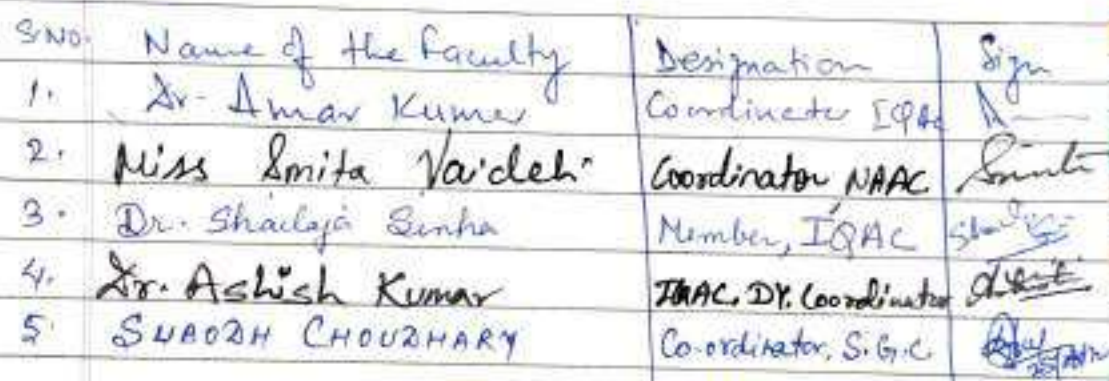 S.NO. Name of the Faculty Designation Sign
1. Dr. Amar Kumar Coordinator IQAC
2. Miss Smita Vaidehi Coordinator NAAC Smita
3. Dr. Shailaja Sinha Member, IQAC
4. Dr. Ashish Kumar DY. Coordinator
5. CHOUDHARY Co-ordinator, S.G.C.